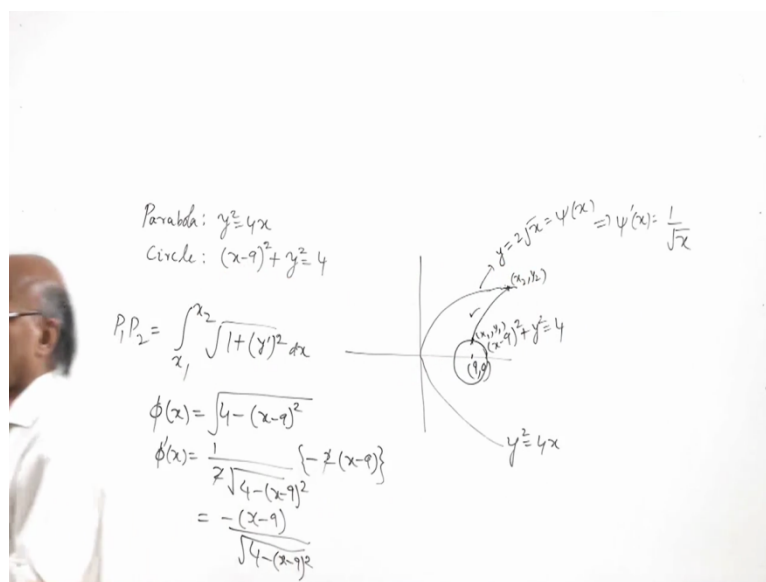 Parabola: y²=4x
Circle: (x-9)²+y²=4
P₁P₂ = ∫_{x₁}^{x₂} √(1+(y')²) dx
φ(x) = √(4-(x-9)²)
φ'(x) = 1/(2√(4-(x-9)²)) {-2(x-9)}
= -(x-9)/√(4-(x-9)²)
y=2√x=ψ(x) ⇒ψ'(x)= 1/√x
(x₂,y₂)
(x₁,y₁)
(x-9)²+y²=4
(9,0)
y²=4x